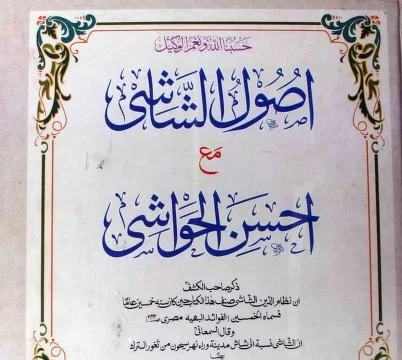 حَسبُنَا اللهُ وَنِعمَ الوَكِيل
اُصُولُ الشَّاشِی
مَع
احسَنِ الحَوَاشِی
ذکر صاحب الکشف
ان نظام الدین الشاشی صنف هذا الکتاب حین کان سنه خمسین عاما
فسماه الخمسین (الفوائد البهیه مصری
وقال السمعانی
ان الشاشی نسبة الی الشاش مدینة وراء نهر سیحون من ثغور الترك